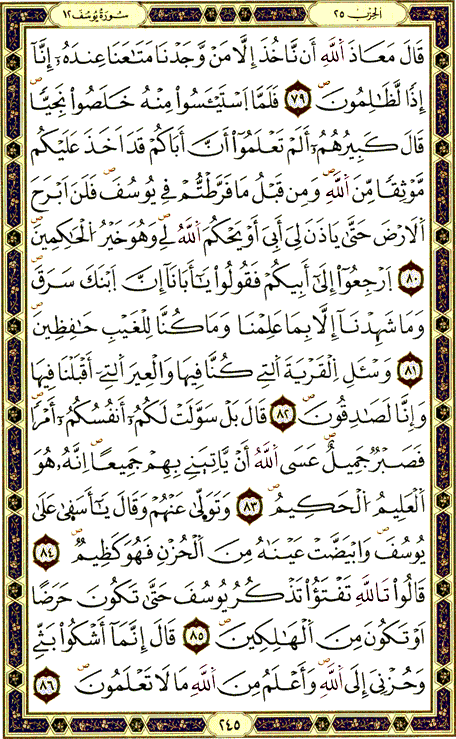 الحزب ٢٥
سورة يوسف ١٢
قَالَ مَعَاذَ اَللَّهِ أَن نَّاخُذَ إِلَّا مَنْ وَّجَدْنَا مَتَٰعَنَا عِندَهُۥٓ إِنَّآ
إِذاٗ لَّظَٰلِمُونَۖ ٧٩ فَلَمَّا اَسْتَيْـَٔسُواْ مِنْهُ خَلَصُواْ نَجِيّاٗۖ
قَالَ كَبِيرُهُمُۥٓ أَلَمْ تَعْلَمُوٓاْ أَنَّ أَبَاكُمْ قَدَ اَخَذَ عَلَيْكُم
مَّوْثِقاٗ مِّنَ اَللَّهِۖ وَمِن قَبْلُ مَا فَرَّطتُّمْ فِے يُوسُفَۖ فَلَنَ اَبْرَحَ
اَلَارْضَ حَتَّىٰ يَاذَنَ لِيَ أَبِيٓ أَوْ يَحْكُمَ اَللَّهُ لِےۖ وَهُوَ خَيْرُ اُلْحَٰكِمِينَۖ
٨٠ اَرْجِعُوٓاْ إِلَىٰٓ أَبِيكُمْ فَقُولُواْ يَٰٓأَبَانَآ إِنَّ اَبْنَكَ سَرَقَۖ
وَمَا شَهِدْنَآ إِلَّا بِمَا عَلِمْنَا وَمَا كُنَّا لِلْغَيْبِ حَٰفِظِينَۖ
٨١ وَسْـَٔلِ اِلْقَرْيَةَ اَلتِے كُنَّا فِيهَا وَالْعِيرَ اَلتِےٓ أَقْبَلْنَا فِيهَاۖ
وَإِنَّا لَصَٰدِقُونَۖ ٨٢ قَالَ بَلْ سَوَّلَتْ لَكُمُۥٓ أَنفُسُكُمُۥٓ أَمْراٗۖ
فَصَبْرٞ جَمِيلٌۖ عَسَى اَللَّهُ أَنْ يَّاتِيَنِے بِهِمْ جَمِيعاًۖ إِنَّهُۥ هُوَ
اَلْعَلِيمُ اُلْحَكِيمُۖ ٨٣ وَتَوَلَّىٰ عَنْهُمْ وَقَالَ يَٰٓأَسَفَىٰ عَلَىٰ
يُوسُفَۖ وَابْيَضَّتْ عَيْنَٰهُ مِنَ اَلْحُزْنِ فَهُوَ كَظِيمٞۖ ٨٤
قَالُواْ تَاللَّهِ تَفْتَؤُاْ تَذْكُرُ يُوسُفَ حَتَّىٰ تَكُونَ حَرَضاً
اَوْ تَكُونَ مِنَ اَلْهَٰلِكِينَۖ ٨٥ قَالَ إِنَّمَآ أَشْكُواْ بَثِّے
وَحُزْنِيَ إِلَى اَللَّهِۖ وَأَعْلَمُ مِنَ اَللَّهِ مَا لَا تَعْلَمُونَۖ ٨٦
٢٤٥